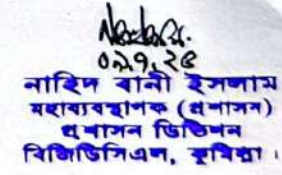 ০১.৭.২৫
নাহিদ বানী ইসলাম
মহাব্যবস্থাপক (প্রশাসন)
প্রশাসন ডিভিশন
বিজিডিসিএল, কুমিল্লা।